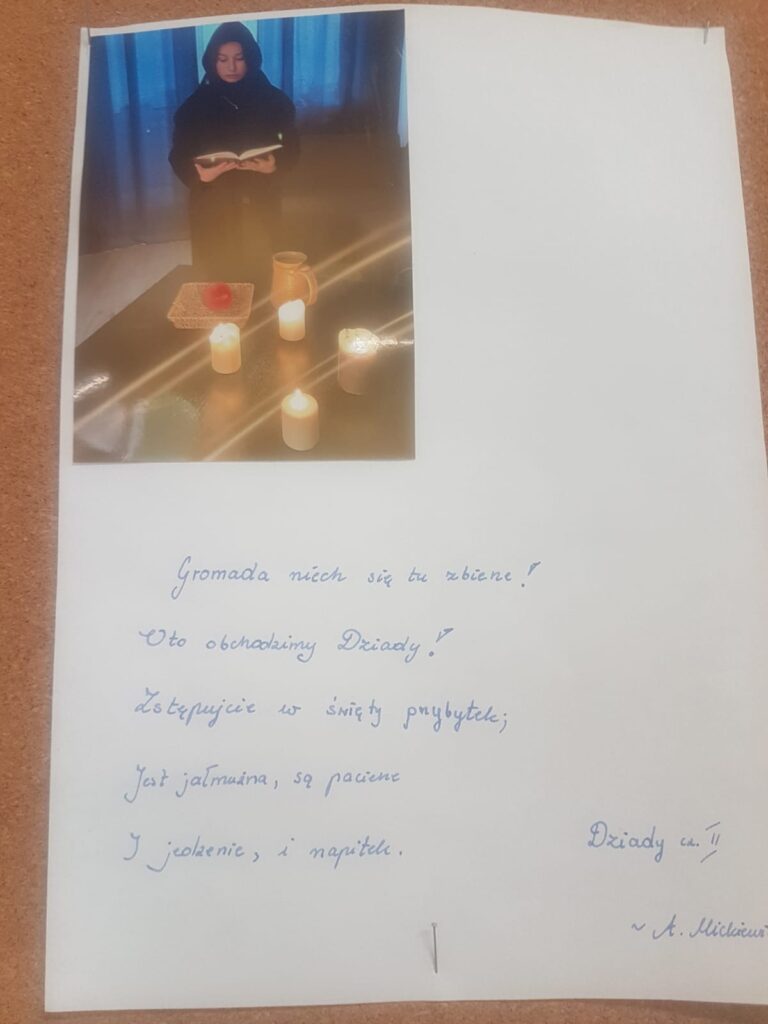 Gromada niech się tu zbierze!
Oto obchodzimy Dziady!
Zstępujcie w święty przybytek;
Jest jałmużna, są pacierze
I jedzenie, i napitek.
Dziady cz. II
~ A. Mickiewi